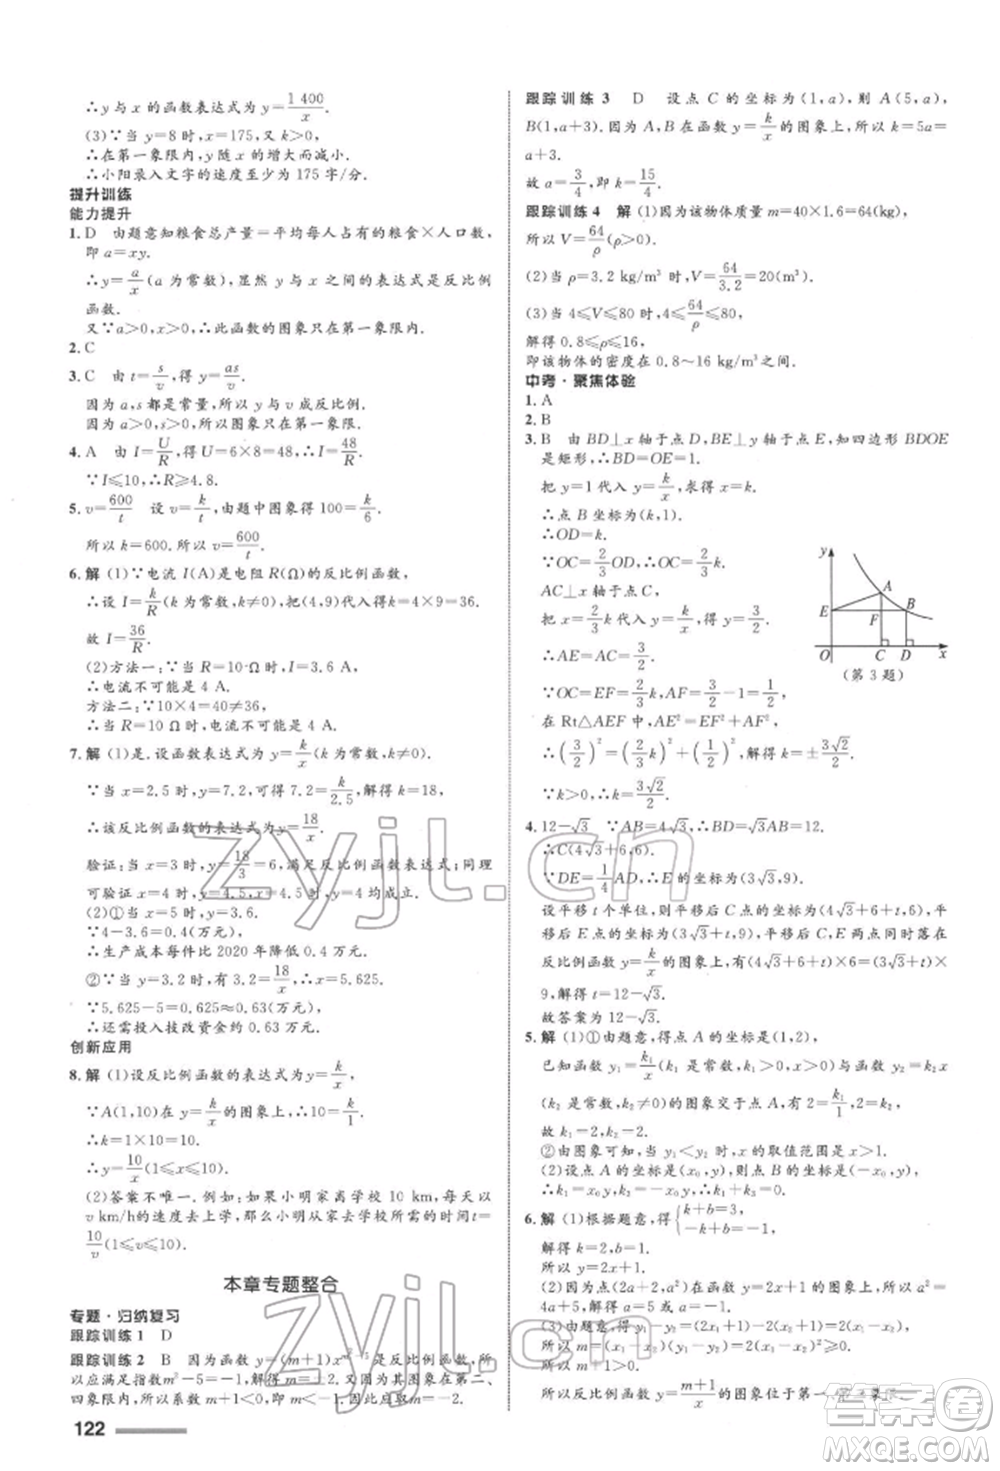 ∴y 与 x 的函数表达式为 y=1 400/x.
(3)∵当 y=8 时,x=175,又 k>0,
∴在第一象限内,y 随 x 的增大而减小.
∴小阳录入文字的速度至少为 175 字/分.
提升训练
能力提升
1. D 由题意知粮食总产量=平均每人占有的粮食×人口数,
即 a=xy.
∴y=a/x(a 为常数),显然 y 与 x 之间的表达式是反比例
函数.
又∵a>0,x>0,∴此函数的图象只在第一象限内.
2. C
3. C 由 t=s/v,得 y=as/v.
因为 a,s 都是常量,所以 y 与 v 成反比例.
因为 a>0,s>0,所以图象只在第一象限.
4. A 由 I=U/R,得 U=6×8=48,∴I=48/R.
∵I≤10,∴R≥4.8.
5. v=600/t 设 v=k/t,由题中图象得 100=k/6.
所以 k=600.所以 v=600/t.
6. 解 (1)∵电流 I(A)是电阻 R(Ω)的反比例函数,
∴设 I=k/R(k 为常数,k≠0),把(4,9)代入得 k=4×9=36.
故 I=36/R.
(2)方法一:∵当 R=10 Ω 时,I=3.6 A,
∴电流不可能是 4 A.
方法二:∵10×4=40≠36,
∴当 R=10 Ω 时,电流不可能是 4 A.
7. 解 (1)是.设函数表达式为 y=k/x(k 为常数,k≠0).
∵当 x=2.5 时,y=7.2,可得 7.2=k/2.5,解得 k=18,
∴该反比例函数的表达式为 y=18/x.
验证:当 x=3 时,y=18/3=6,满足反比例函数表达式;同理
可验证 x=4,y=4.5,x=4.5,y=4 成立.
(2)①当 x=5 时,y=3.6.
∵4-3.6=0.4(万元),
∴生产成本每件比 2020 年降低 0.4 万元.
②∵当 y=3.2 时,有 3.2=18/x,∴x=5.625.
∵5.625-5=0.625≈0.63(万元),
∴还需投入技改资金约 0.63 万元.
创新应用
8. 解 (1)设反比例函数的表达式为 y=k/x,
∵A(1,10)在 y=k/x 的图象上,∴10=k/1.
∴k=1×10=10.
∴y=10/x(1≤x≤10).
(2)答案不唯一.例如:如果小明家离学校 10 km,每天以
v km/h 的速度去上学,那么小明从家去学校所需的时间 t=
10/v(1≤v≤10).
本章专题整合
专题·归纳复习
跟踪训练 1 D
跟踪训练 2 B 因为函数 y=(m+1)x^{m²-5} 是反比例函数,所
以应满足指数 m²-5=-1,解得 m=±2.又图象在第二、
四象限内,所以系数 m+1<0,即 m<-1,故 m=-2.
122
跟踪训练 3 D 设点 C 的坐标为(1,a),则 A(5,a),
B(1,a+3).因为 A,B 在函数 y=k/x 的图象上,所以 k=5a=
a+3.
故 a=3/4,即 k=15/4.
跟踪训练 4 解 (1)因为该物体质量 m=40×1.6=64(kg),
所以 V=64/ρ(ρ>0).
(2)当 ρ=3.2 kg/m³ 时,V=64/3.2=20(m³).
(3)当 4≤V≤80 时,4≤64/ρ≤80,
解得 0.8≤ρ≤16.
即该物体的密度在 0.8~16 kg/m³ 的范围内.
中考·聚焦体验
1. A
2. B
3. B 由 BD⊥x 轴于点 D,BE⊥y 轴于点 E,知四边形 BDOE
是矩形,∴BD=OE=1.
把 y=1 代入 y=k/x,求得 x=k.
∴点 B 坐标为(k,1).
∴OD=k.
∵OC=2/3 OD,∴OC=2/3 k.
AC⊥x 轴于点 C,
把 x=2/3 k 代入 y=k/x,得 y=3/2.
∴AE=AC=3/2.
∵OC=EF=2/3 k,AF=3/2-1=1/2,
在 Rt△AEF 中,AE²=EF²+AF²,
∴(3/2)²=(2/3 k)²+(1/2)²,解得 k=±3√2/2.
∵k>0,∴k=3√2/2.
y
A
E
F
B
O
C
D
x
(第 3 题)
4. 12-√3 ∵AB=4√3,∴BD=√3AB=12.
∴C(4√3+6,9).
∵DE=1/4 AD,∴E(3√3,9).
设平移 t 个单位,则平移后 C 点的坐标为(4√3+6+t,9),平移
后 E 点的坐标为(3√3+t,9),平移后 C,E 两点同时落在
反比例函数 y=k/x 的图象上,∴(4√3+6+t)×9=(3√3+t)×
9,解得 t=12-√3.
故答案为 12-√3.
5. 解 (1)①由题意,得点 A 的坐标是(1,2),
已知函数 y₁=k₁/x(k₁是常数,k₁>0,x>0)与函数 y₂=k₂x
(k₂是常数,k₂≠0)的图象交于点 A,∴2=k₁/1,2=k₂,
故 k₁=2,k₂=2.
②由图象可知,当 y₁<y₂ 时,x 的取值范围是 x>1.
(2)设点 A 的坐标是(x₀,y),则点 B 的坐标是(-x₀,y).
∴k₁=x₀y,k₃=-x₀y,∴k₁+k₃=0.
6. 解 (1)根据题意,得{k+b=3,
-k+b=-1,
解得 k=2,b=1.
所以 k=2,b=1.
(2)因为点(2a+1,4a+5)在函数 y=2x+1 的图象上,所以
4a+5=2(2a+1)+1
(3)由题意,得 y₁-y₂=(2x₁+1)-(2x₂+1)=2(x₁-x₂),
所以反比例函数 y=m+1/x 的图象位于第一、第三象限.
zyjl.cn
zyjl.cn
答案圈
MXQE.COM